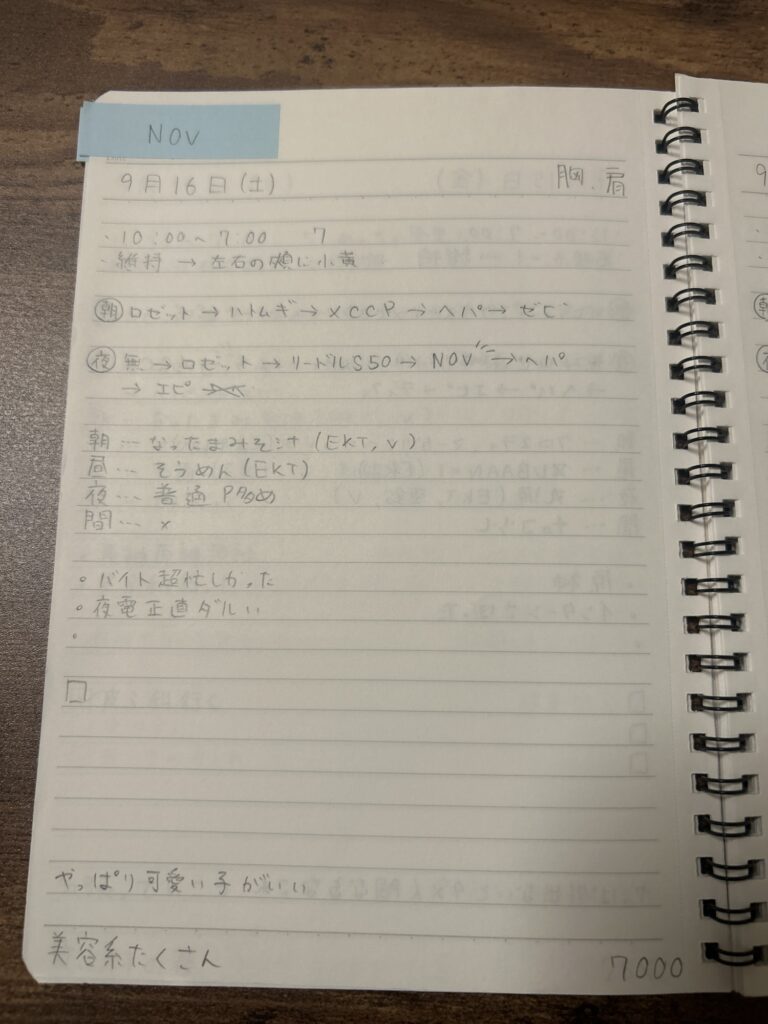 NOV
9月16日(土) 胸、肩
・10:00〜7:00 7
・維持 → 左右の頬に小黄
朝 ロゼット→ハトムギ→XCCP→ヘパ→ゼビ
夜 無→ロゼット→リードルS50→NOV→ヘパ
→エピ
朝…なったまみそ汁(EKT, V)
昼…そうめん(EKT)
夜…普通 P多め
間…×
。バイト超忙しかった
。夜電正直ダルい
。
□
やっぱり可愛い子がいい
美容系たくさん 7000
9
朝
夜